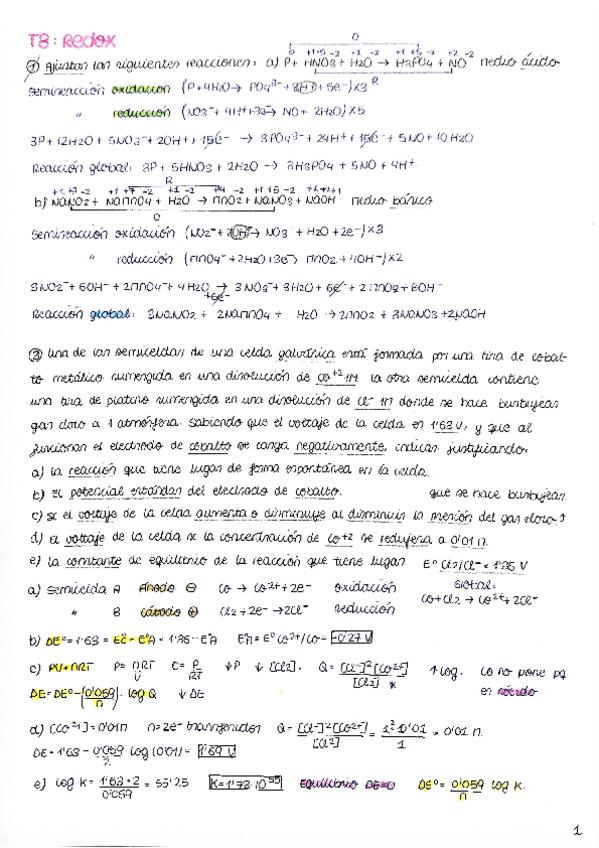 T8: Redox
① Ajustar las siguientes reacciones: a) P + HNO3 + H2O → H3PO4 + NO medio ácido
semirreacción oxidación (P + 4H2O → PO4³⁻ + 8H⁺ + 5e⁻) x3
" reducción (NO3⁻ + 4H⁺ + 3e⁻ → NO + 2H2O) x5
3P + 12H2O + 5NO3⁻ + 20H⁺ + 15e⁻ → 3PO4³⁻ + 24H⁺ + 15e⁻ + 5NO + 10H2O
Reacción global: 3P + 5HNO3 + 2H2O → 3H3PO4 + 5NO + 4H⁺
R
b) NaNO2 + NaMnO4 + H2O → MnO2 + NaNO3 + NaOH medio básico
O
semirreacción oxidación (NO2⁻ + 2OH⁻ → NO3 + H2O + 2e⁻) x3
" reducción (MnO4⁻ + 2H2O + 3e⁻) MnO2 + 4OH⁻) x2
3NO2⁻ + 6OH⁻ + 2MnO4⁻ + 4H2O → 3NO3⁻ + 3H2O + 6e⁻ + 2MnO2 + 8OH⁻
+6e⁻
Reacción global: 3NaNO2 + 2NaMnO4 + H2O → 2MnO2 + 3NaNO3 + 2NaOH
una de las semiceldas de una celda galvánica está formada por una tira de cobal-
to metálico sumergida en una disolución de Co⁺² 1M la otra semicelda contiene
una tira de platino sumergida en una disolución de Cl⁻ 1M donde se hace burbujear
gas cloro a 1 atmósfera. Sabiendo que el voltaje de la celda es 1'63 V, y que al
funcionar el electrodo de cobalto se carga negativamente, indicar justificando:
a) La reacción que tiene lugar de forma espontánea en la celda.
b) El potencial estándar del electrodo de cobalto. que se hace burbujear
c) si el voltaje de la celda aumenta o disminuye al disminuir la presión del gas cloro
d) el voltaje de la celda si la concentración de Co⁺² se redujera a 0'01 M.
e) la constante de equilibrio de la reacción que tiene lugar. E° Cl2/Cl⁻ = 1'36 V
a) Semicelda A Ánodo ⊖ Co → Co²⁺ + 2e⁻ oxidación Global:
" B cátodo ⊕ Cl2 + 2e⁻ → 2Cl⁻ reducción Co + Cl2 → Co²⁺ + 2Cl⁻
b) ΔE° = 1'63 = E°C - E°A = 1'36 - E°A E°A = E° Co²⁺/Co = -0'27 V
c) PV = nRT P = nRT/V C = P/RT ↓P ↓[Cl2]. Q = [Cl⁻]²[Co²⁺]/[Cl2] * ↑log. Co no pone pq
ΔE = ΔE° - (0'059/n) · log Q ↓ΔE es sólido
d) [Co²⁺] = 0'01M n = 2e⁻ transferidos Q = [Cl⁻]²[Co²⁺]/[Cl2] = 1² · 0'01/1 = 0'01 M.
ΔE = 1'63 - 0'059/2 log (0'01) = 1'69 V
e) log K = 1'63 · 2/0'059 = 55'25 K = 1'78 · 10⁵⁵ Equilibrio ΔE = 0 ΔE° = 0'059/n log K.
1